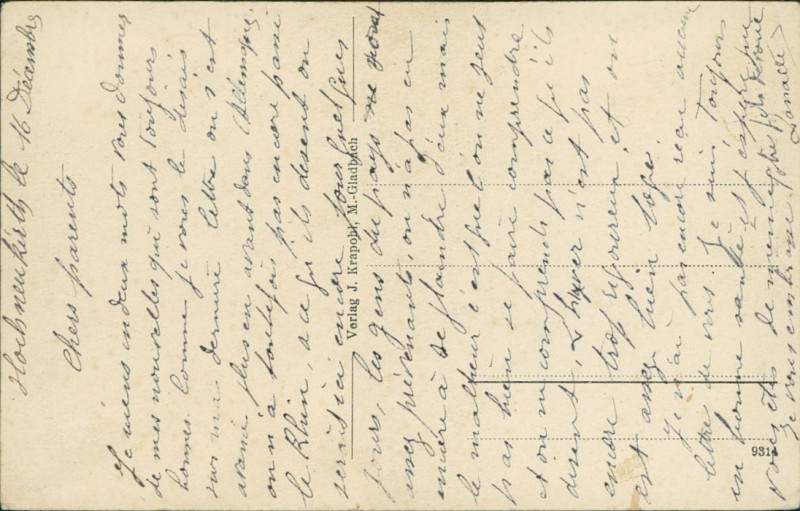 Hochneukirch le 16 Décembre
Chers parents
Je viens en deux mots vous donner
de mes nouvelles qui sont toujours
bonnes. Comme je vous le disais
sur ma dernière lettre on s'est
avancé plus en avant dans l'Allemagne,
on n'a toutefois pas encore passé
le Rhin, à ce qu'ils disent on
serait ici encore pour quelques
jours, les gens du pays ne sont
assez prévenants, on n'a pas eu
encore à se plaindre d'eux mais
le malheur c'est que l'on ne peut
pas bien se faire comprendre
et on ne comprend pas ce qu'ils
disent, L'hiver n'est pas
encore trop rigoureux et on
est assez bien logé.
Je n'ai pas encore reçu aucune
lettre de vous. Je suis toujours
en bonne santé et j'espère que
vous êtes de même. Votre fils dévoué
je vous embrasse
Verlag J. Krapohl, M.-Gladbach
9314